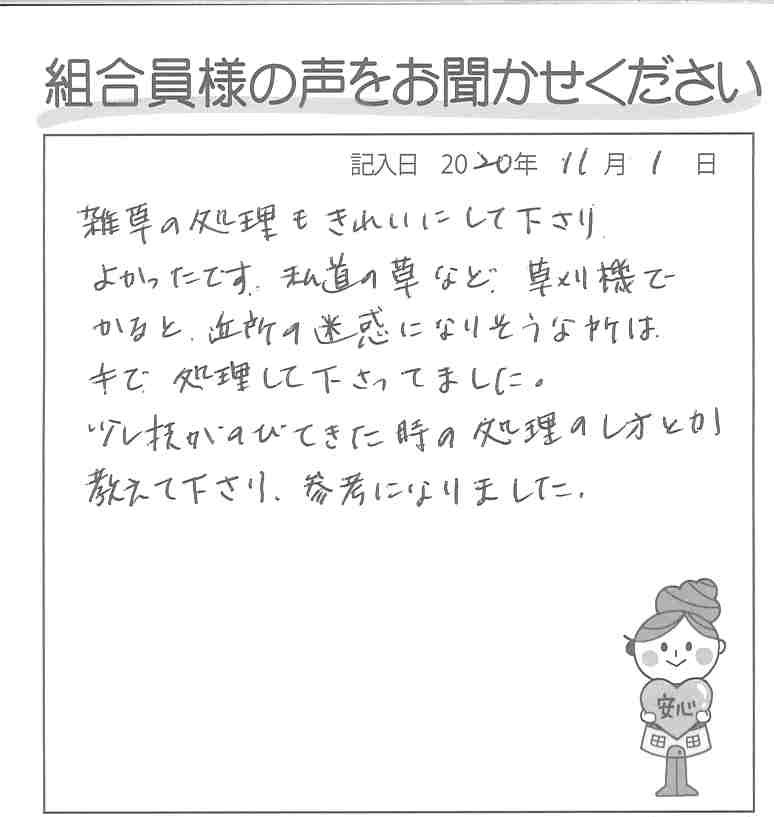 組合員様の声をお聞かせください
記入日 2020年 11月 1日
雑草の処理もきれいにして下さり
よかったです。私道の草など、草刈機で
かると、近所の迷惑になりそうな所は
手で処理して下さってました。
少し枝がのびてきた時の処理のし方とか
教えて下さり、参考になりました。
安心